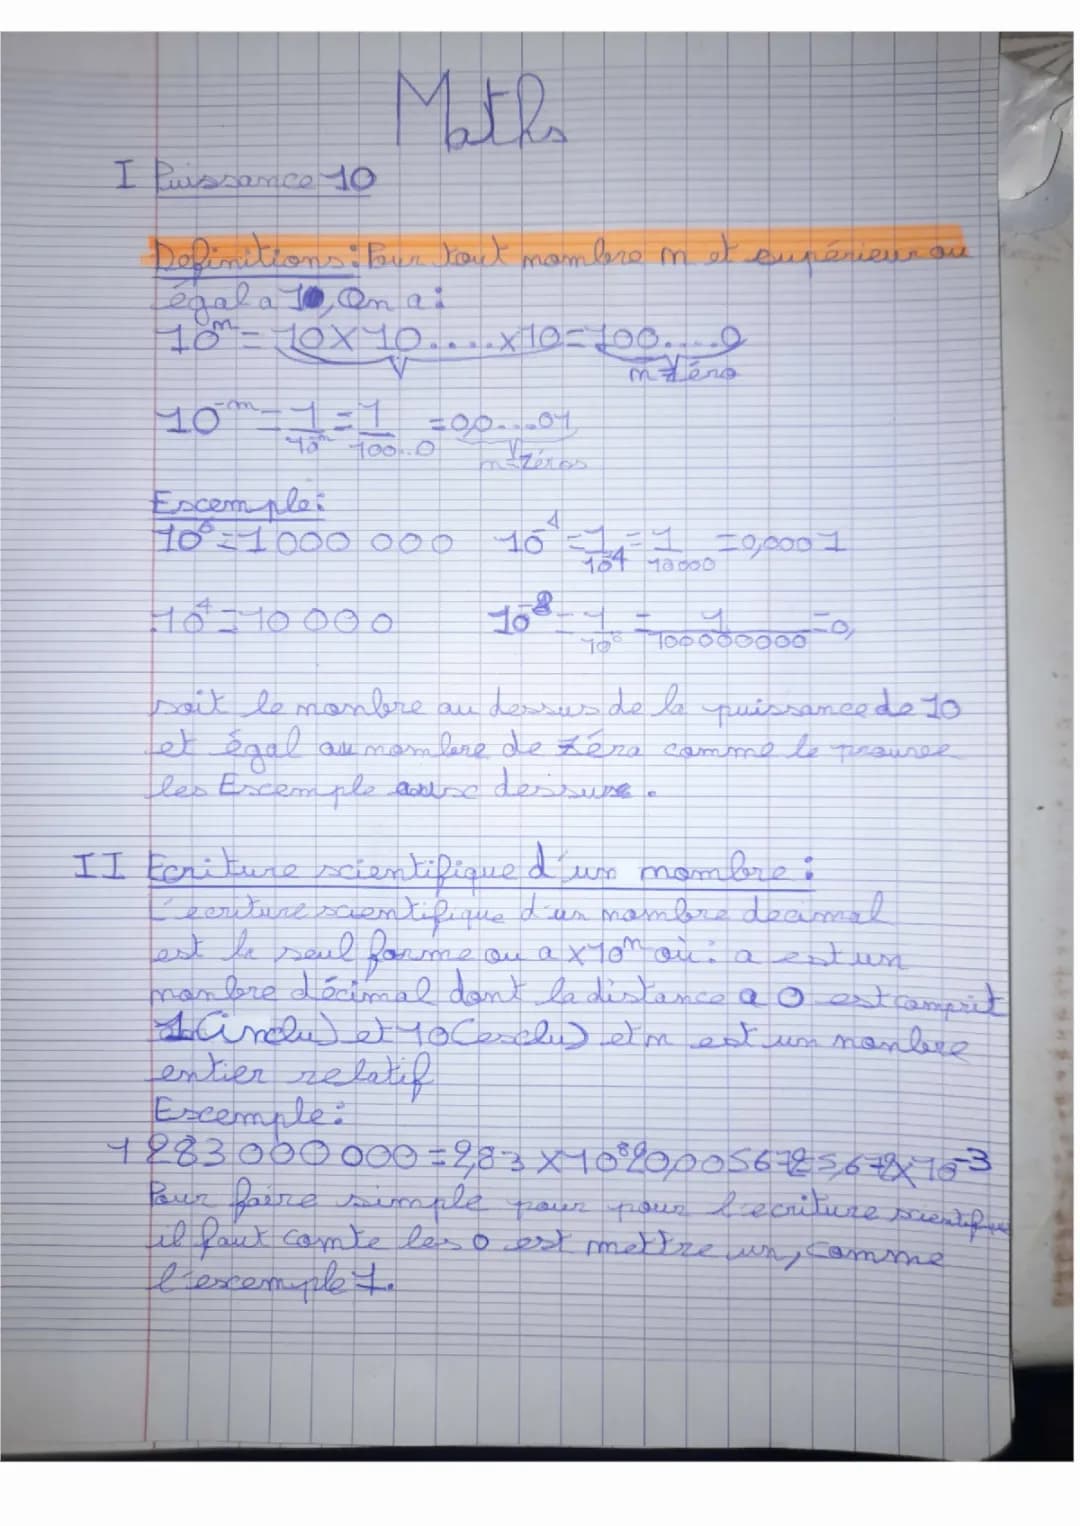 Maths
I Puissance 10
Definitions : Pour tout nombre n et supérieur ou
égal a 10, On a :
10ⁿ = 10 X 10 .... x 10 = 100....0
n zéro
10⁻ⁿ = 1/10ⁿ = 1/100..0 = 0,0...01
n zéros
Escemple :
10⁶ = 1 000 000 10⁻⁴ = 1/10⁴ = 1/10000 = 0,0001
10⁴ = 10 000 10⁻⁸ = 1/10⁸ = 1/100000000 = 0,
soit le nonbre au dessus de la puissance de 10
et égal au nombre de zéro comme le prouve
les Escemple dessus.
II Ecriture scientifique d'un nombre :
L'ecriture scientifique d'un nombre decimal
est la seul forme ou a x 10ⁿ où : a est un
nonbre décimal dont la distance a 0 est comprit
1 (inclu) et 10 (esclu) et n est un nonbre
entier relatif
Escemple :
1 283 000 000 = 2,83 X 10⁸ 2 0,005672 = 5,672 x 10⁻³
Pour faire simple pour pour l'ecriture scientifique
il faut comte les 0 est mettre un, comme
l'escemple 1.